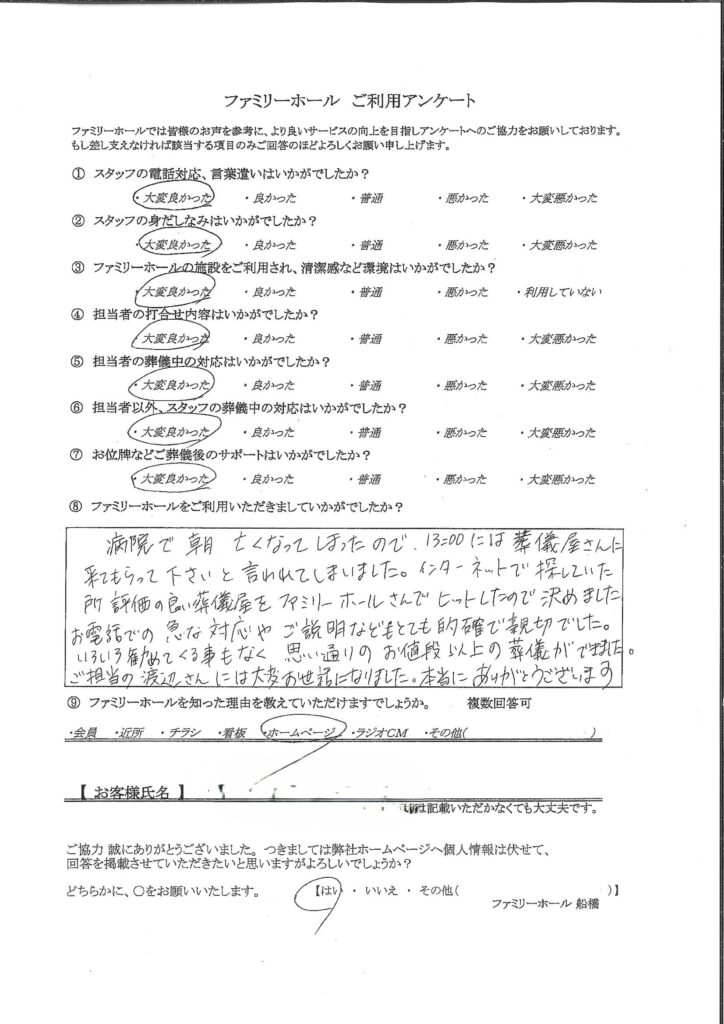 ファミリーホール ご利用アンケート
ファミリーホールでは皆様のお声を参考に、より良いサービスの向上を目指しアンケートへのご協力をお願いしております。
もし差し支えなければ該当する項目のみご回答のほどよろしくお願い申し上げます。
① スタッフの電話対応、言葉遣いはいかがでしたか？
・大変良かった ・良かった ・普通 ・悪かった ・大変悪かった
② スタッフの身だしなみはいかがでしたか？
・大変良かった ・良かった ・普通 ・悪かった ・大変悪かった
③ ファミリーホールの施設をご利用され、清潔感など環境はいかがでしたか？
・大変良かった ・良かった ・普通 ・悪かった ・利用していない
④ 担当者の打合せ内容はいかがでしたか？
・大変良かった ・良かった ・普通 ・悪かった ・大変悪かった
⑤ 担当者の葬儀中の対応はいかがでしたか？
・大変良かった ・良かった ・普通 ・悪かった ・大変悪かった
⑥ 担当者以外、スタッフの葬儀中の対応はいかがでしたか？
・大変良かった ・良かった ・普通 ・悪かった ・大変悪かった
⑦ お位牌などご葬儀後のサポートはいかがでしたか？
・大変良かった ・良かった ・普通 ・悪かった ・大変悪かった
⑧ ファミリーホールをご利用いただきましていかがでしたか？
病院で朝 亡くなってしまったので、13:00には葬儀屋さんに
来てもらって下さいと言われてしまいました。インターネットで探していた
所評価の良い葬儀屋をファミリーホールさんでヒットしたので決めました
お電話での急な対応やご説明などもとても的確で親切でした。
いろいろ勧めてくる事もなく 思い通りのお値段以上の葬儀ができました。
ご担当の渡辺さんには大変お世話になりました。本当にありがとうございます
⑨ ファミリーホールを知った理由を教えていただけますでしょうか。 複数回答可
・会員 ・近所 ・チラシ ・看板 ・ホームページ ・ラジオCM ・その他( )
【 お客様氏名 】
は記載いただかなくても大丈夫です。
ご協力 誠にありがとうございました。つきましては弊社ホームページへ個人情報は伏せて、
回答を掲載させていただきたいと思いますがよろしいでしょうか？
どちらかに、〇をお願いいたします。 【はい ・ いいえ ・ その他( )】
ファミリーホール 船橋